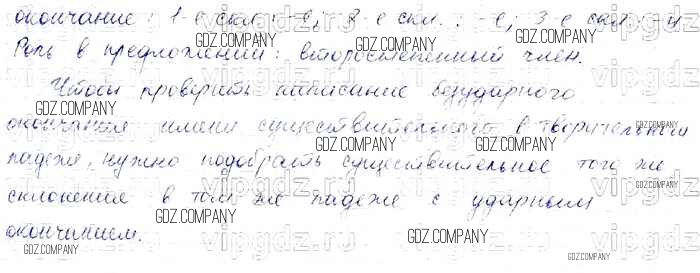 окончание: 1-е скл.: -е; 2-е скл.: -е; 3-е скл.: -и
GDZ.COMPANY GDZ.COMPANY
Роль в предложении: второстепенный член.
GDZ.COMPANY GDZ.COMPANY
Чтобы проверить написание безударного
GDZ.COMPANY GDZ.COMPANY
окончания имени существительного в творительном
падеже, нужно подобрать существительное того же
GDZ.COMPANY GDZ.COMPANY
склонения в том же падеже с ударным
GDZ.COMPANY GDZ.COMPANY
окончанием.
GDZ.COMPANY GDZ.COMPANY GDZ.COMPANY
vipgdz.ru